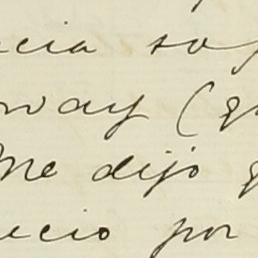 cia so
way (q
Me dijo q
ecio por